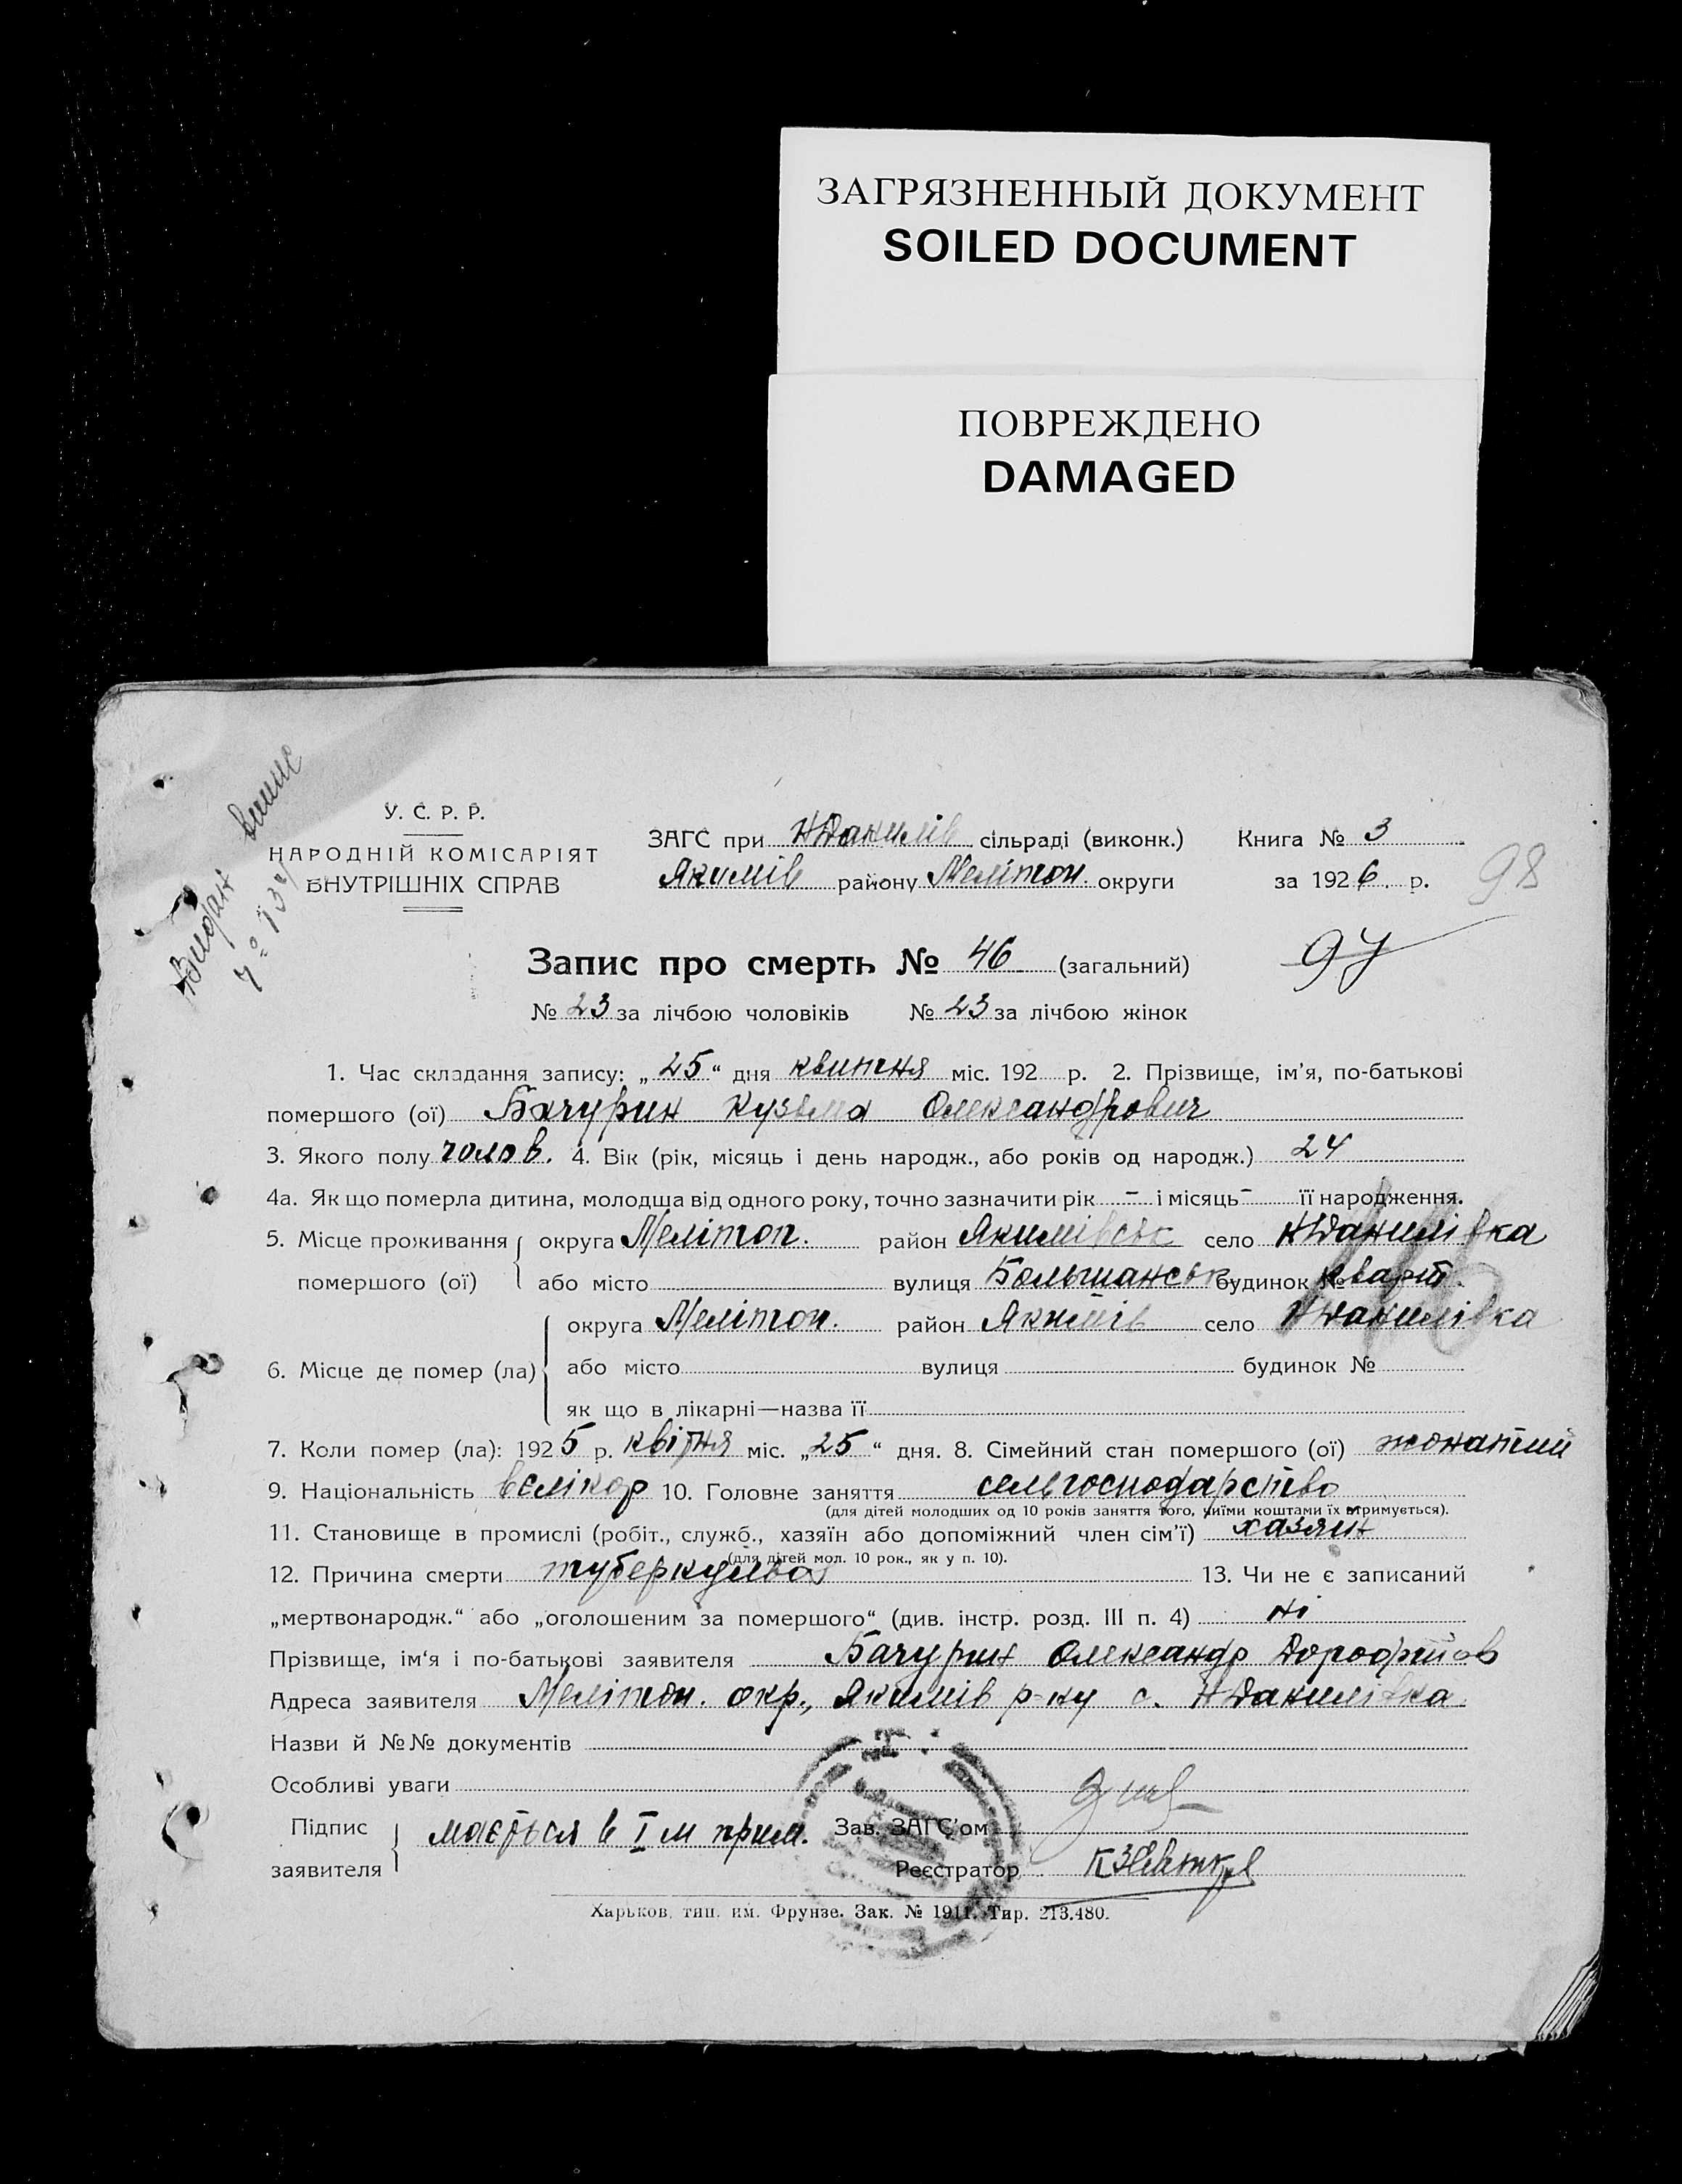 ЗАГРЯЗНЕННЫЙ ДОКУМЕНТ
SOILED DOCUMENT
ПОВРЕЖДЕНО
DAMAGED
Видан випис
У. С. Р. Р.
НАРОДНІЙ КОМІСАРІЯТ
ВНУТРІШНІХ СПРАВ
ЗАГС при НДанилів сільраді (виконк.) Книга № 3
Якимів району Мелітоп. округи за 1926. р.
98
97
Запис про смерть № 46 (загальний)
№ 23 за лічбою чоловіків № 23 за лічбою жінок
1. Час складання запису: „25“ дня квитня міс. 192 р. 2. Прізвище, ім'я, по-батькові
помершого (ої) Бачурин Кузьма Олександрович
3. Якого полу чолов. 4. Вік (рік, місяць і день народж., або років од народж.) 24
4а. Як що померла дитина, молодша від одного року, точно зазначити рік - і місяць - її народження.
5. Місце проживання помершого (ої) округа Мелітоп. район Якимівськ село НДанилівка
або місто вулиця Большанськ будинок № кварт.
6. Місце де помер (ла) округа Мелітоп. район Якимів село НДанилівка
або місто вулиця будинок №
як що в лікарні—назва її
7. Коли помер (ла): 1925 р. квітня міс. „25“ дня. 8. Сімейний стан помершого (ої) жонатий
9. Національність велікор 10. Головне заняття сельгосподарство
(для дітей молодших од 10 років заняття того, чиїми коштами їх втримується).
11. Становище в промислі (робіт., служб., хазяїн або допоміжний член сім'ї) хазяин
(для дітей мол. 10 рок., як у п. 10).
12. Причина смерти туберкульоз 13. Чи не є записаний
„мертвонародж.“ або „оголошеним за помершого“ (див. інстр. розд. III п. 4) ні
Прізвище, ім'я і по-батькові заявителя Бачурин Олександр
Адреса заявителя Мелітоп. окр., Якимів р-ну с. НДанилівка
Назви й №№ документів
Особливі уваги
Підпис заявителя мається в I м прим. Зав. ЗАГС'ом
Реєстратор
Харьков, тип. им. Фрунзе. Зак. № 1911. Тир. 213.480.